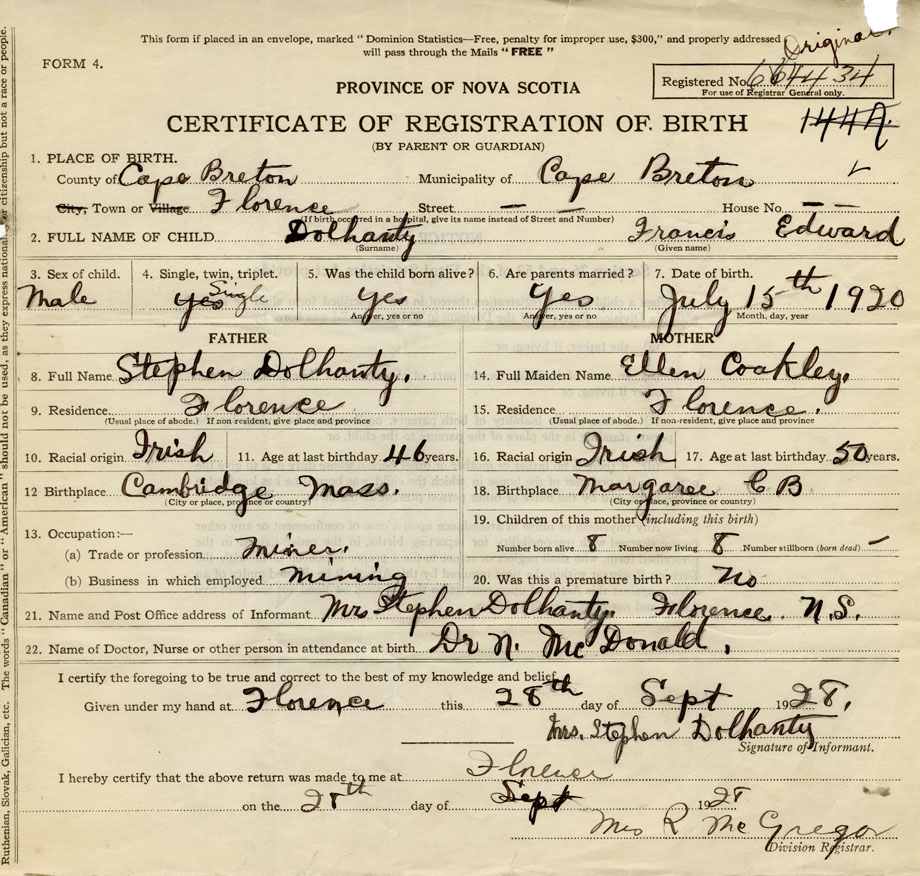 This form if placed in an envelope, marked "Dominion Statistics—Free, penalty for improper use, $300," and properly addressed
will pass through the Mails "FREE"
Original
FORM 4.
Registered No. 664434
For use of Registrar General only.
PROVINCE OF NOVA SCOTIA
CERTIFICATE OF REGISTRATION OF BIRTH
144A
(BY PARENT OR GUARDIAN)
1. PLACE OF BIRTH.
County of Cape Breton Municipality of Cape Breton
City, Town or Village Florence Street — — House No. — —
(If birth occurred in a hospital, give its name instead of Street and Number)
2. FULL NAME OF CHILD Dolhanty Francis Edward
(Surname) (Given name)
3. Sex of child. 4. Single, twin, triplet. 5. Was the child born alive? 6. Are parents married? 7. Date of birth.
Male yes Single yes Yes July 15th 1920
Answer, yes or no Answer, yes or no Month, day, year
FATHER MOTHER
8. Full Name Stephen Dolhanty. 14. Full Maiden Name Ellen Coakley.
9. Residence Florence 15. Residence Florence.
(Usual place of abode.) If non-resident, give place and province (Usual place of abode.) If non-resident, give place and province
10. Racial origin Irish 11. Age at last birthday 46 years. 16. Racial origin Irish 17. Age at last birthday 50 years.
12 Birthplace Cambridge Mass. 18. Birthplace Margaree C B
(City or place, province or country) (City or place, province or country)
19. Children of this mother (including this birth)
13. Occupation:—
(a) Trade or profession miner. Number born alive 8 Number now living 8 Number stillborn (born dead) —
(b) Business in which employed mining 20. Was this a premature birth? No
21. Name and Post Office address of Informant Mrs Stephen Dolhanty. Florence. N.S.
22. Name of Doctor, Nurse or other person in attendance at birth. Dr N. McDonald.
I certify the foregoing to be true and correct to the best of my knowledge and belief.
Given under my hand at Florence this 28th day of Sept 1928.
Mrs. Stephen Dolhanty
Signature of Informant.
I hereby certify that the above return was made to me at Florence
on the 28th day of Sept 1928
Mrs R McGregor
Division Registrar.
Ruthenian, Slovak, Galician, etc. The words "Canadian" or "American" should not be used, as they express nationality or citizenship but not a race or people.